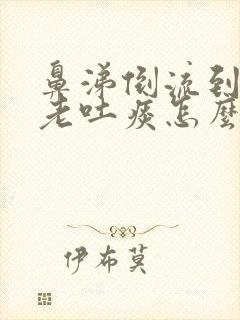 鼻涕倒流到
老吐痰怎麼
伊布莫